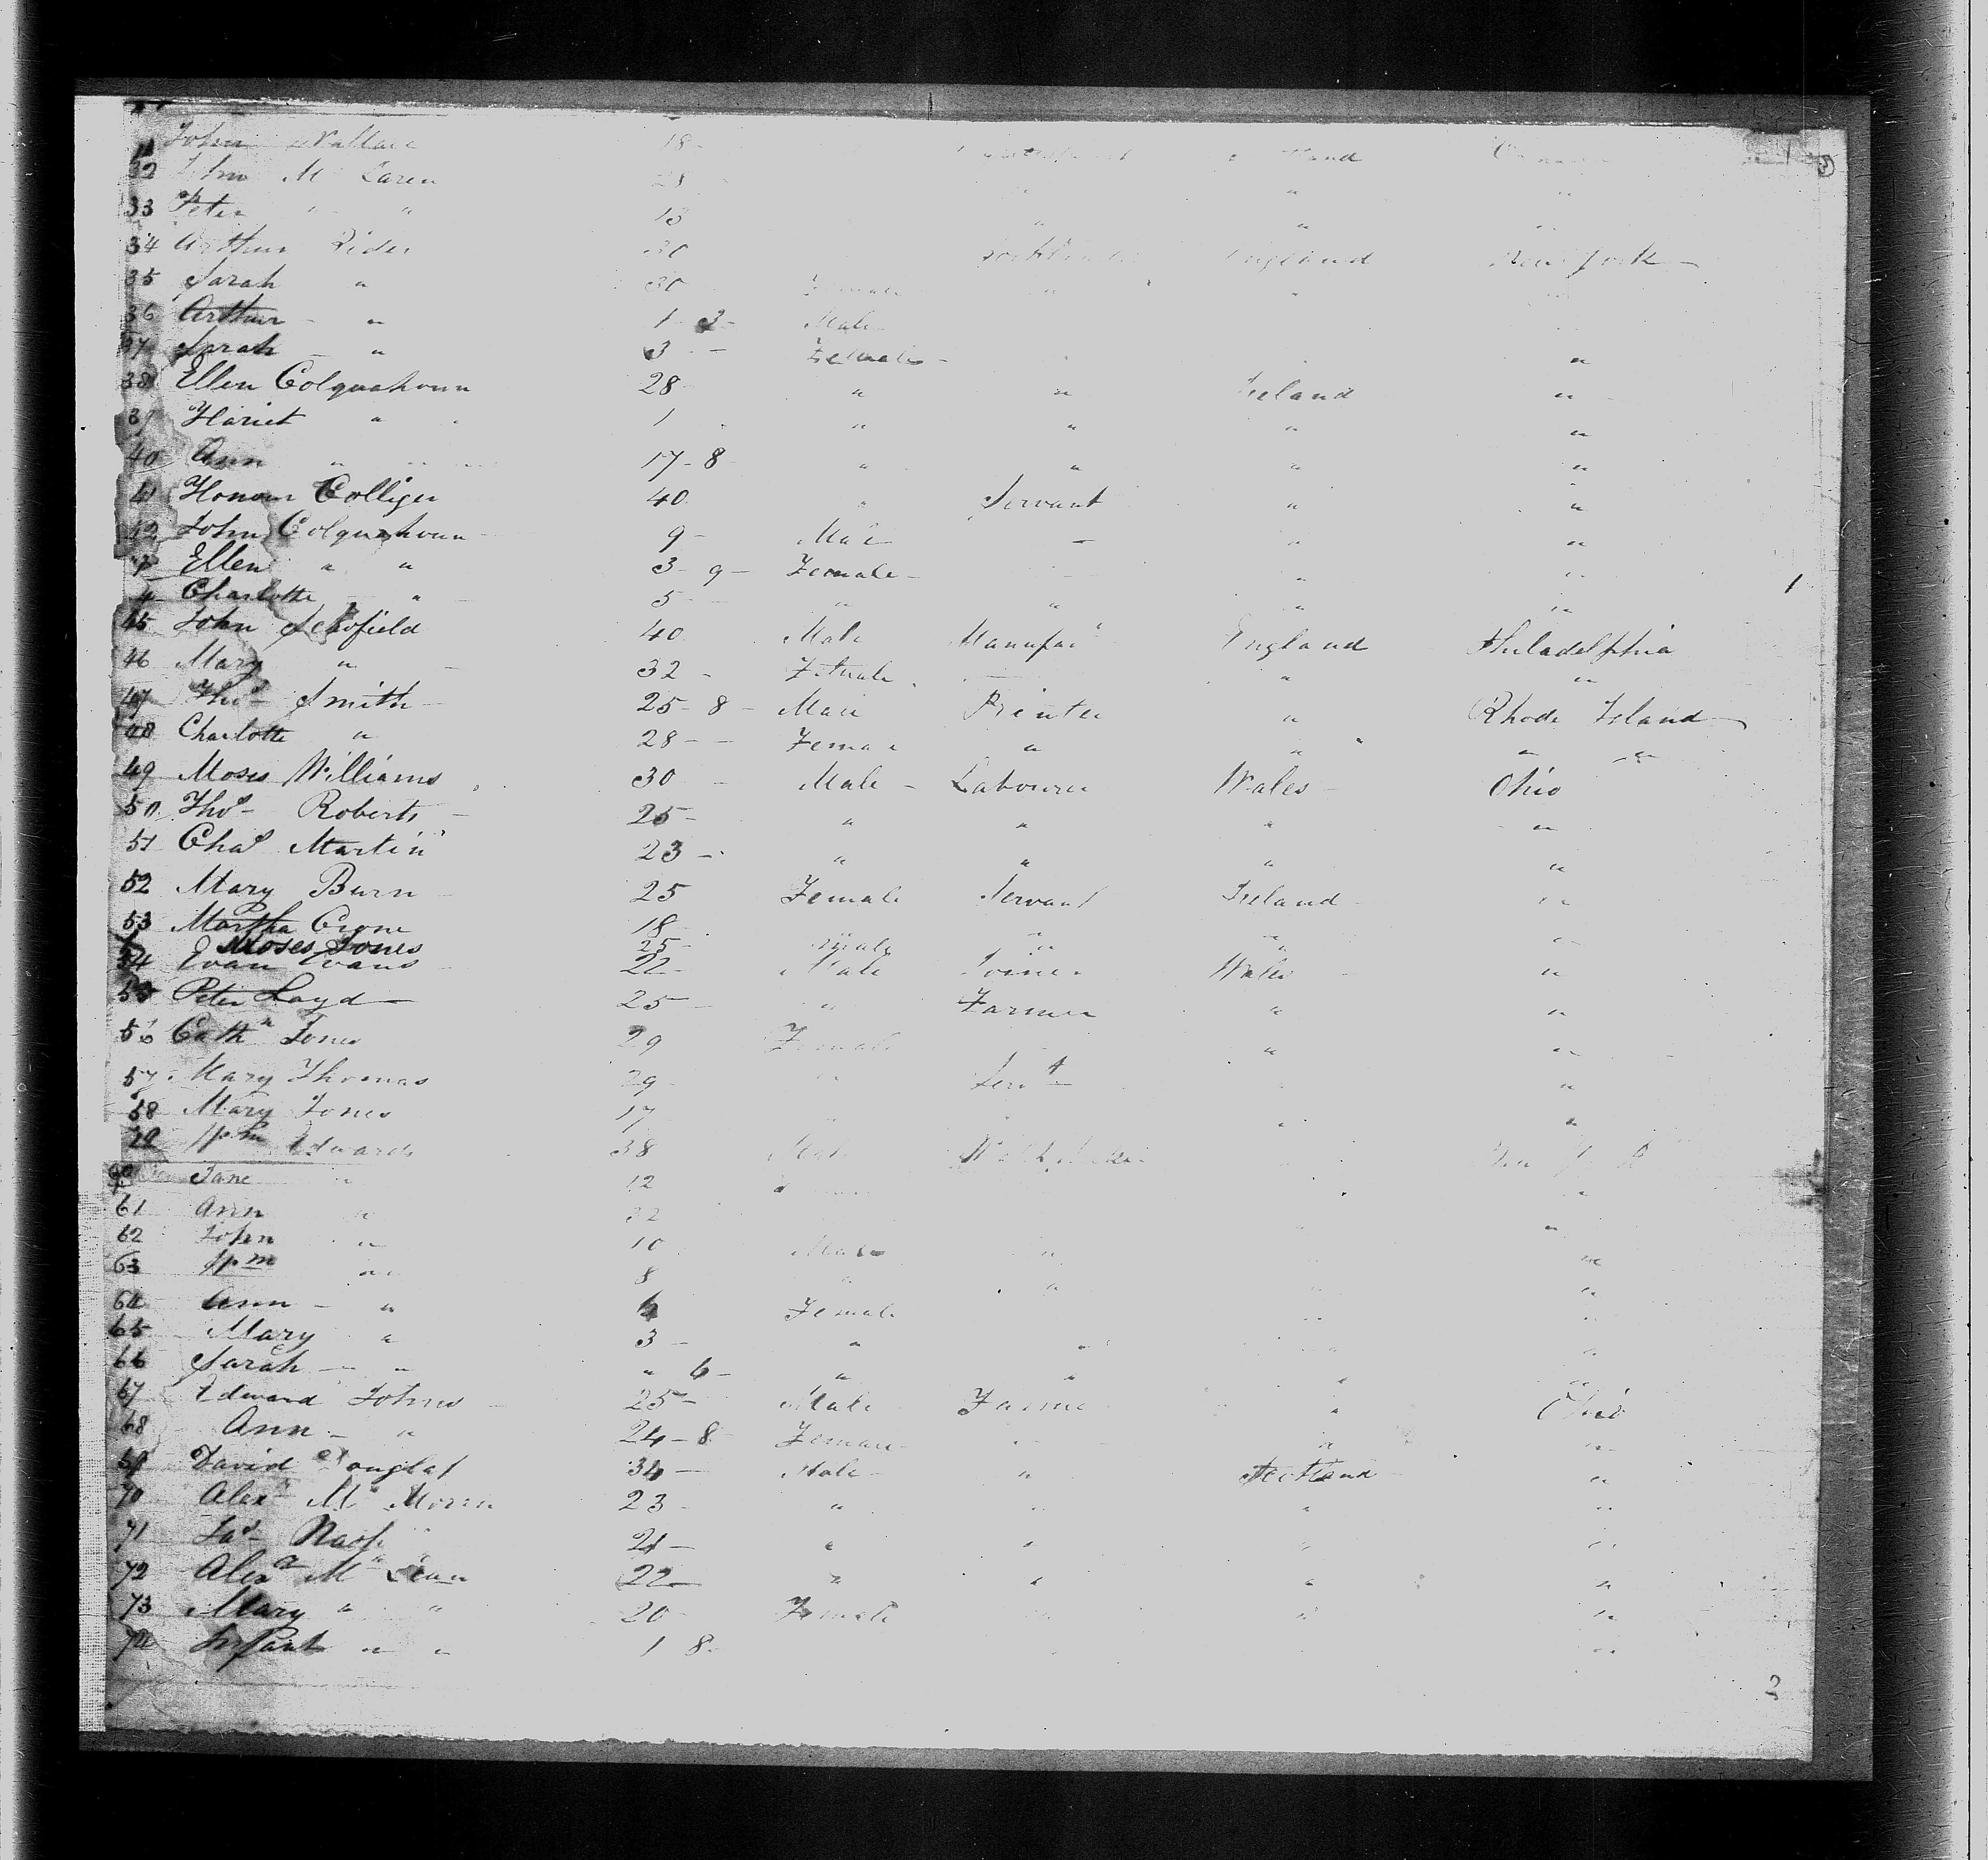 John Wallace 18
32 John Mc Laren 28 " "
33 Peter " " 13 " " "
34 Arthur Rider 30 England New York
35 Sarah " 30 Female " " "
36 Arthur " 1 3 Male
37 Sarah " 3 Female "
38 Ellen Colquahoun 28 " " Ireland "
39 Hariet " 1 " " " "
40 Ann " 17 - 8 " " " "
41 Honour Colliger 40 " Servant " "
42 John Colquahoun 9 - Male - " "
Ellen " " 3 - 9 - Female - " "
Charlotte " 5 - " " " "
45 John Schofield 40 Male England Philadelphia
46 Mary " 32 - Female " "
47 Thos Smith 25 - 8 - Male Printer " Rhode Island
48 Charlotte " 28 - - Female " " " "
49 Moses Williams 30 - Male - Labourer Wales Ohio
50 Thos Roberts 25 - " " " "
51 Chas Martin 23 - " " " "
52 Mary Burn 25 Female Servant Ireland "
53 Martha Crone 18 - " " "
Moses Jones 25 - Male "
54 Evan Evans 22 - Male Joiner Wales "
55 Peter Loyd 25 - " Farmer " "
56 Cathn Jones 29 Female " "
57 Mary Thomas 29 " Servt "
58 Mary Jones 17 " "
Wm Edwards 38 Male New York
Jane " 12 "
61 Ann " 32 "
62 John " 10 Male " "
63 Wm " 8 " " "
64 Ann - " 6 Female " "
65 Mary " 3 - " " " "
66 Sarah - " " 6 - " " " "
67 Edward Johns 25 - Male Farmer " Ohio
68 Ann - " 24 - 8 Female " "
69 David Douglas 34 - Male " Scotland "
70 Alexr Mc 23 " " " "
71 Jas 21 - " " " "
72 Alexr Mc Lean 22 " " " "
73 Mary " " 20 Female " "
74 Infant " " 1 8 "
2